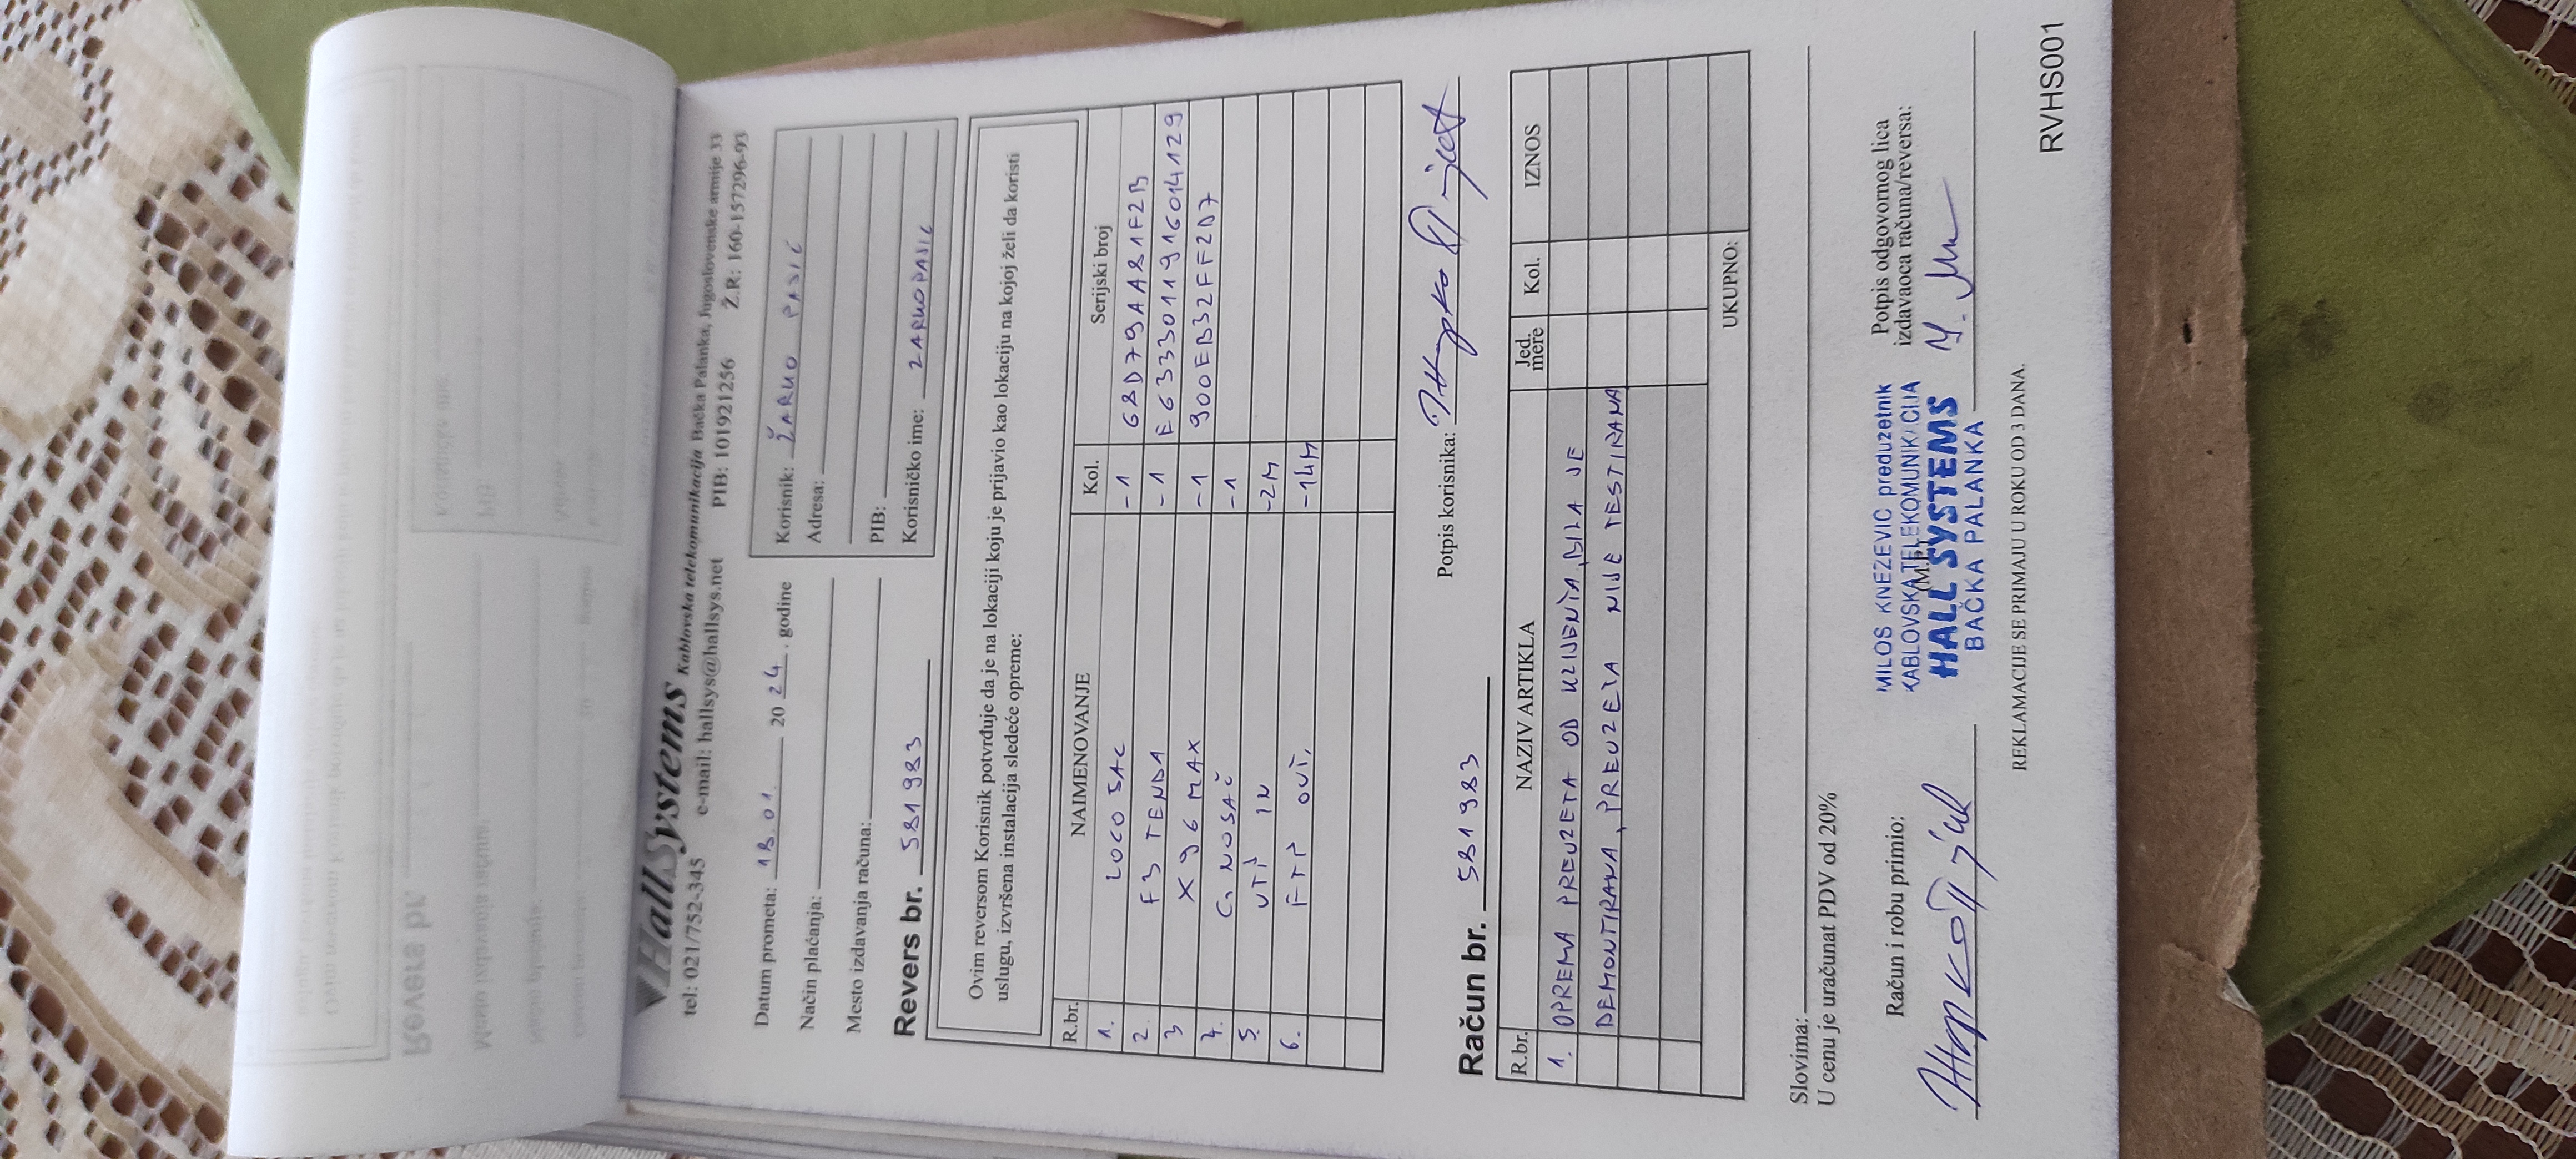 HallSystems Kablovska telekomunikacija Bačka Palanka, Jugoslovenske armije 33
tel: 021/752-345 e-mail: hallsys@hallsys.net PIB: 101921256 Ž.R: 160-157296-93
Datum prometa: 18.01. 2024. godine
Način plaćanja:
Mesto izdavanja računa:
Revers br. 581983
Korisnik: ŽARKO PASIĆ
Adresa:
PIB:
Korisničko ime: ZARKOPASIC
Ovim reversom Korisnik potvrđuje da je na lokaciji koju je prijavio kao lokaciju na kojoj želi da koristi
uslugu, izvršena instalacija sledeće opreme:
R.br. NAIMENOVANJE Kol. Serijski broj
1. LOCO 5AC -1 68D79AA81F2B
2. F3 TENDA -1 E6333011916014129
3 X96 MAX -1 900EB32FF2D7
4. G NOSAČ -1
5. UTP IN -2M
6. FTP OUT. -14M
Potpis korisnika:
Račun br. 581983
R.br. NAZIV ARTIKLA Jed. mere Kol. IZNOS
1. OPREMA PREUZETA OD KLIJENTA, BILA JE
DEMONTIRANA, PREUZETA NIJE TESTIRANA
UKUPNO:
Slovima:
U cenu je uračunat PDV od 20%
Račun i robu primio:
(M.P.)
MILOS KNEZEVIC preduzetnik
KABLOVSKA TELEKOMUNIKACIJA
HALL SYSTEMS
BAČKA PALANKA
Potpis odgovornog lica
izdavaoca računa/reversa:
REKLAMACIJE SE PRIMAJU U ROKU OD 3 DANA.
RVHS001